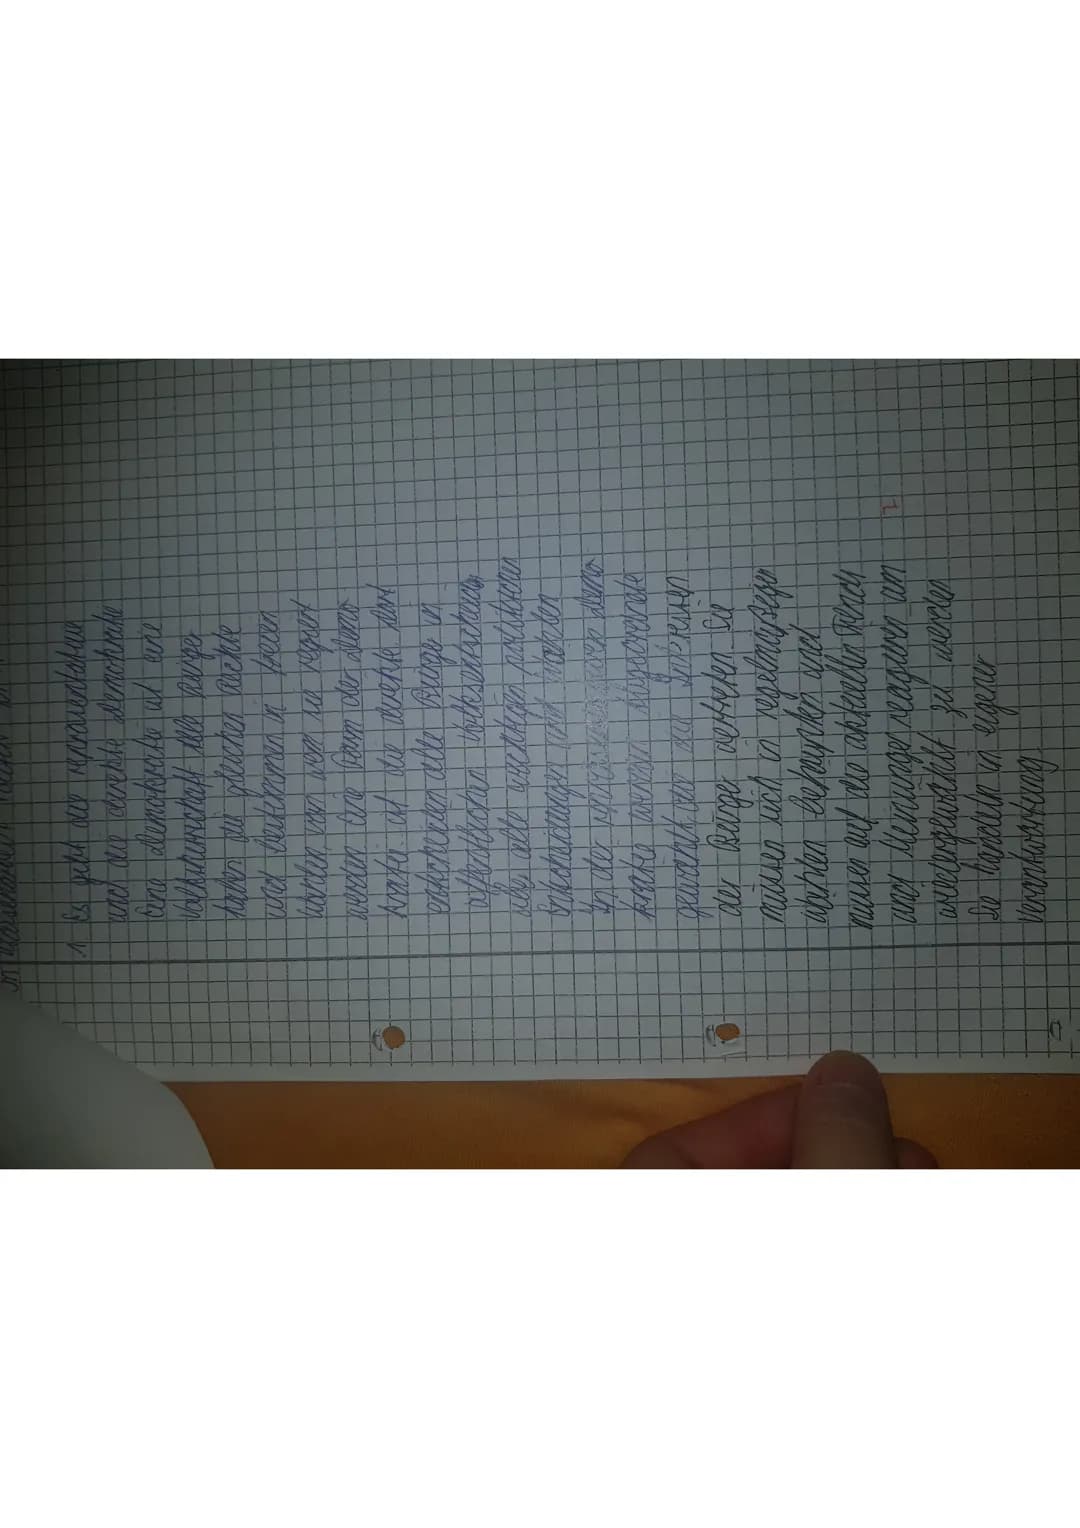 1. Es gibt die repräsentative
und die direkte demokratie
Eine demokratie ist eine
Volksherrschaft alle Bürger
haben die gleichen Rechte
und bestimmen in freien
Wahlen von wem sie regiert
werden Eine Form der demo
kratie ist die direkte dort
entscheiden alle Bürger in
öffentlichen Volksabstimmung
alle wichtigen politischen
Entscheidungen und
In der repräsentativen demo
kratie werden Abgeordnete
gewählt, die die Interessen
der Bürger vertreten Sie
müssen sich in regelmäsigen
wahlen behaupten und
müssen auf die aktuellen Trends
und Meinungen reagieren um
wiedergewählt zu werden
Sie handeln in eigener
Verantwortung